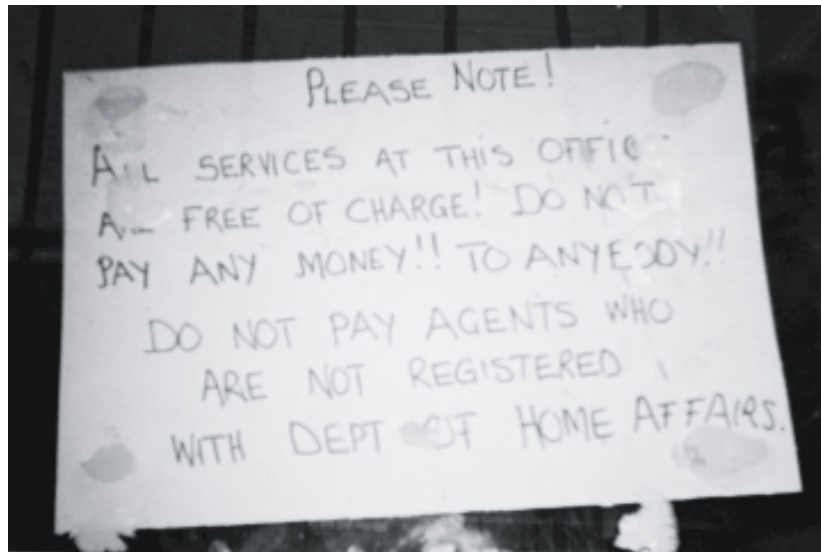 PLEASE NOTE!
ALL SERVICES AT THIS OFFICE
ALL FREE OF CHARGE! DO NOT
PAY ANY MONEY!! TO ANYBODY!!
DO NOT PAY AGENTS WHO
ARE NOT REGISTERED
WITH DEPT OF HOME AFFAIRS.